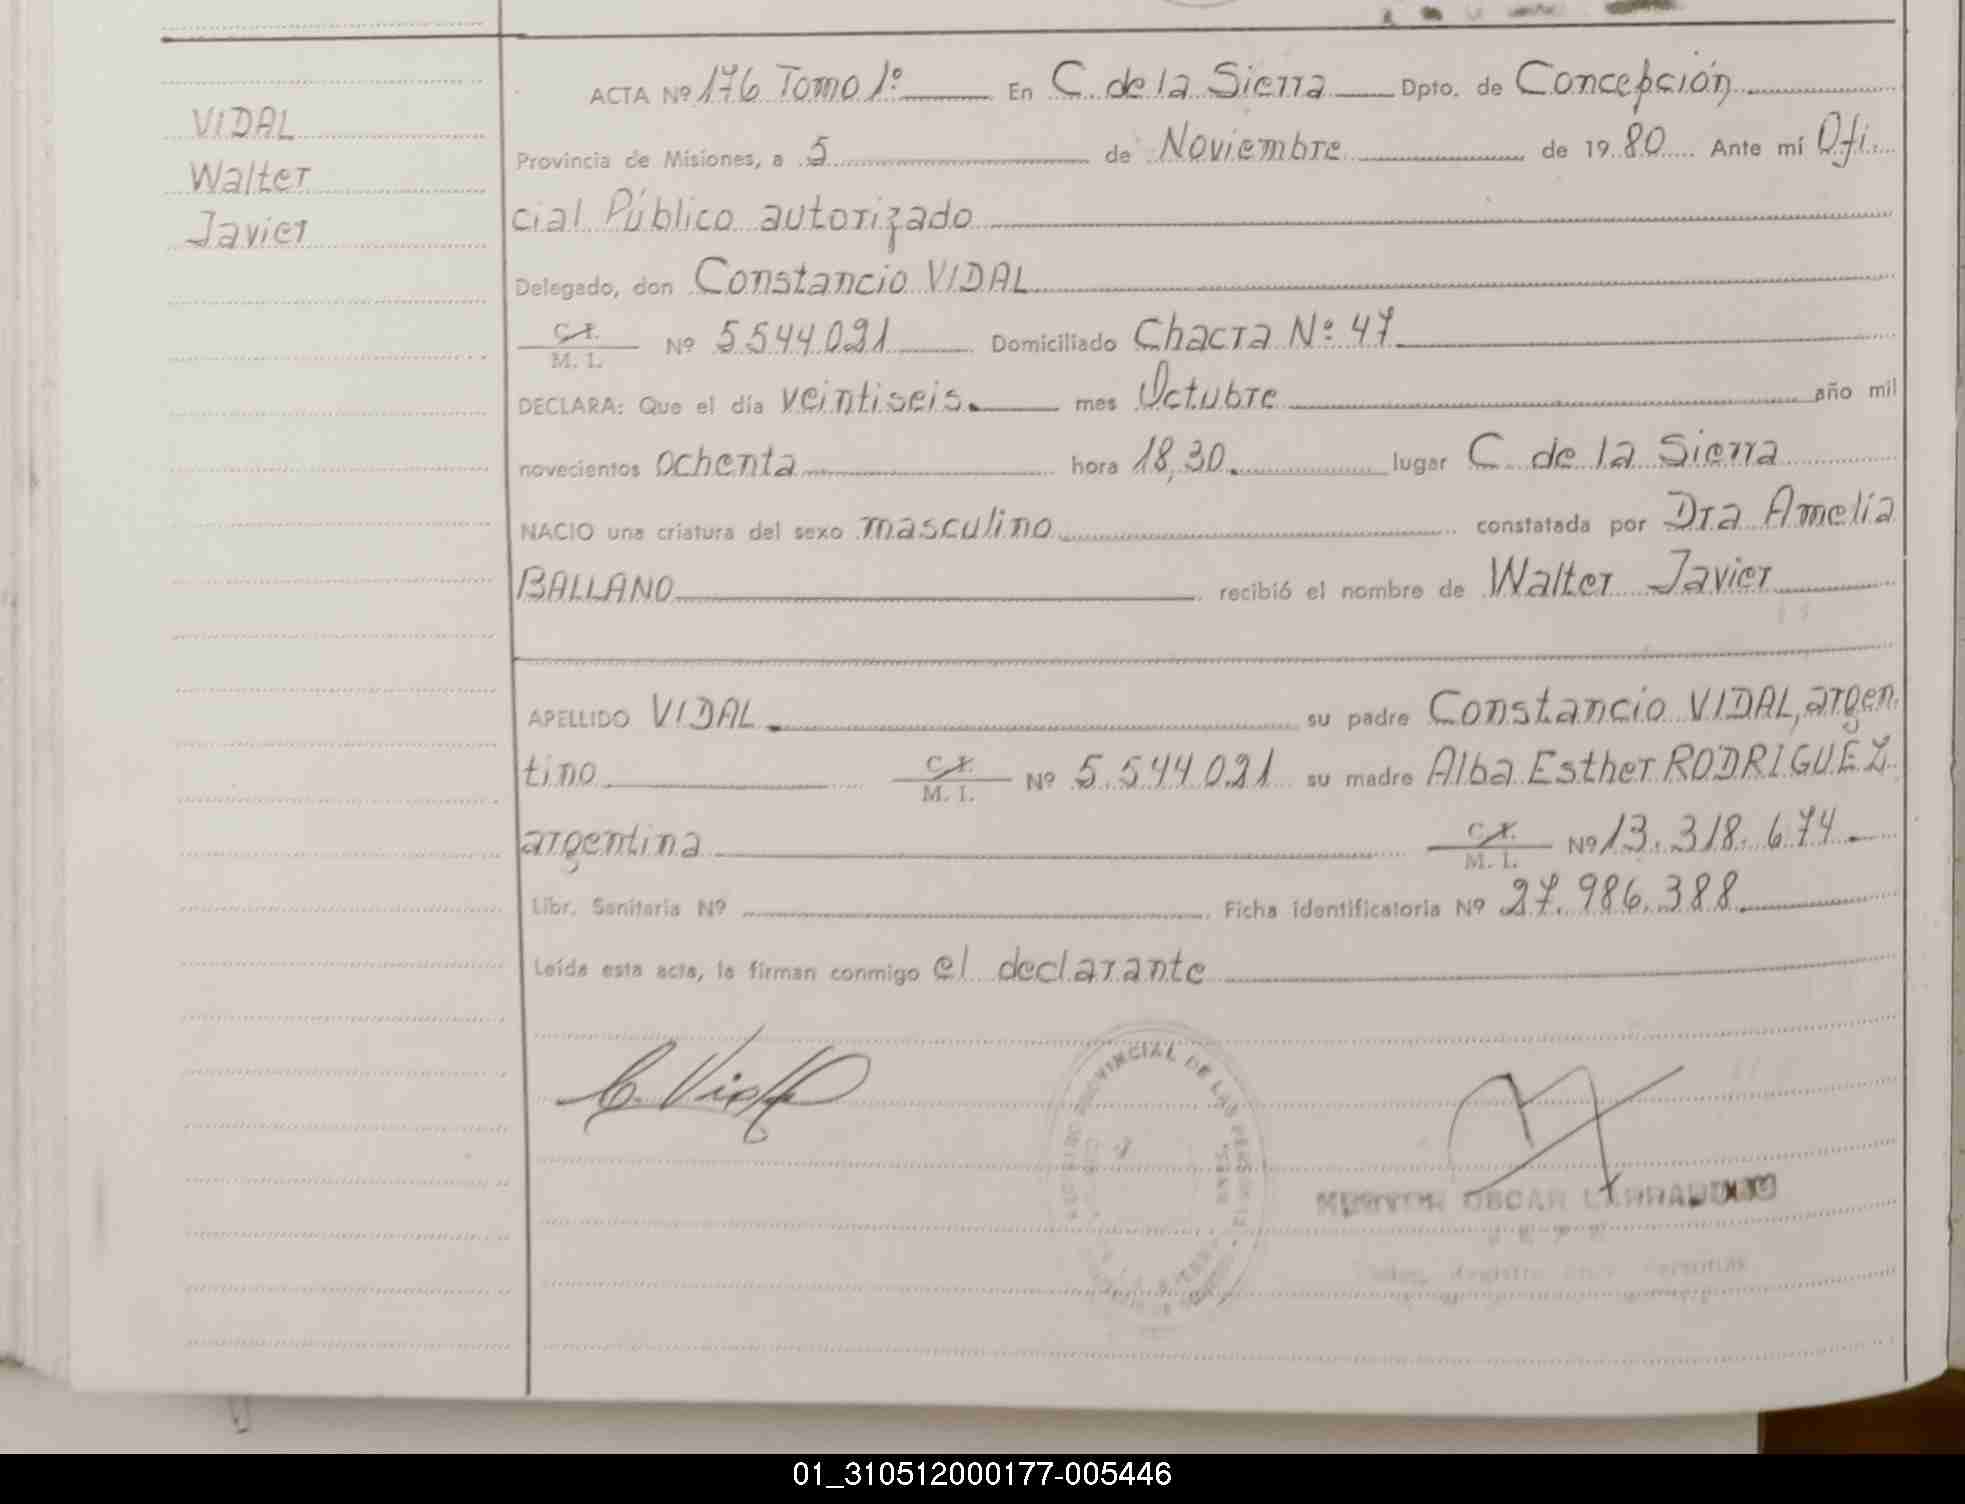 VIDAL
Walter
Javier
ACTA Nº 176 Tomo 1º En C. de la Sierra Dpto. de Concepción
Provincia de Misiones, a 5 de Noviembre de 1980 Ante mí Ofi.
cial Público autorizado
Delegado, don Constancio VIDAL
C. I.
M. I. Nº 5.544.021 Domiciliado Chacra Nº 47
DECLARA: Que el día veintiseis. mes Octubre año mil
novecientos ochenta hora 18,30. lugar C. de la Sierra
NACIO una criatura del sexo masculino constatada por Dra Amelia
BALLANO recibió el nombre de Walter Javier
APELLIDO VIDAL su padre Constancio VIDAL, argen.
tino C. I.
M. I. Nº 5.544.021 su madre Alba Esther RODRIGUEZ
argentina C. I.
M. I. Nº 13.318.674.
Libr. Sanitaria Nº Ficha identificatoria Nº 27.986.388
Leída esta acta, la firman conmigo el declarante
C. Vidal
PROVINCIAL DE LAS PERSONAS
OSCAR
JEFE
01_310512000177-005446